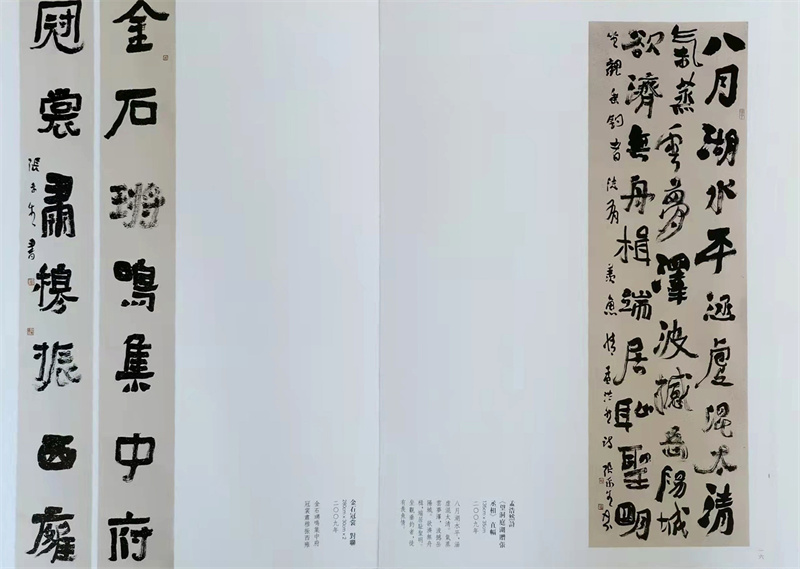 八月湖水平涵虛混太清
氣蒸雲夢澤波撼岳陽城
欲濟無舟楫端居恥聖明
坐觀垂釣者徒有羨魚情孟浩然詩
孟浩然詩
《望洞庭湖贈張
丞相》 直幅
136cm×35cm
二〇〇九年
八月湖水平,涵
虛混太清。氣蒸
雲夢澤,波撼岳
陽城。欲濟無舟
楫,端居恥聖明。
坐觀垂釣者,徒
有羨魚情。
金石鳴集中府
冠裳肅穆振西廱
書
金石冠裳 對聯
二〇〇九年
金石鳴集中府
冠裳肅穆振西